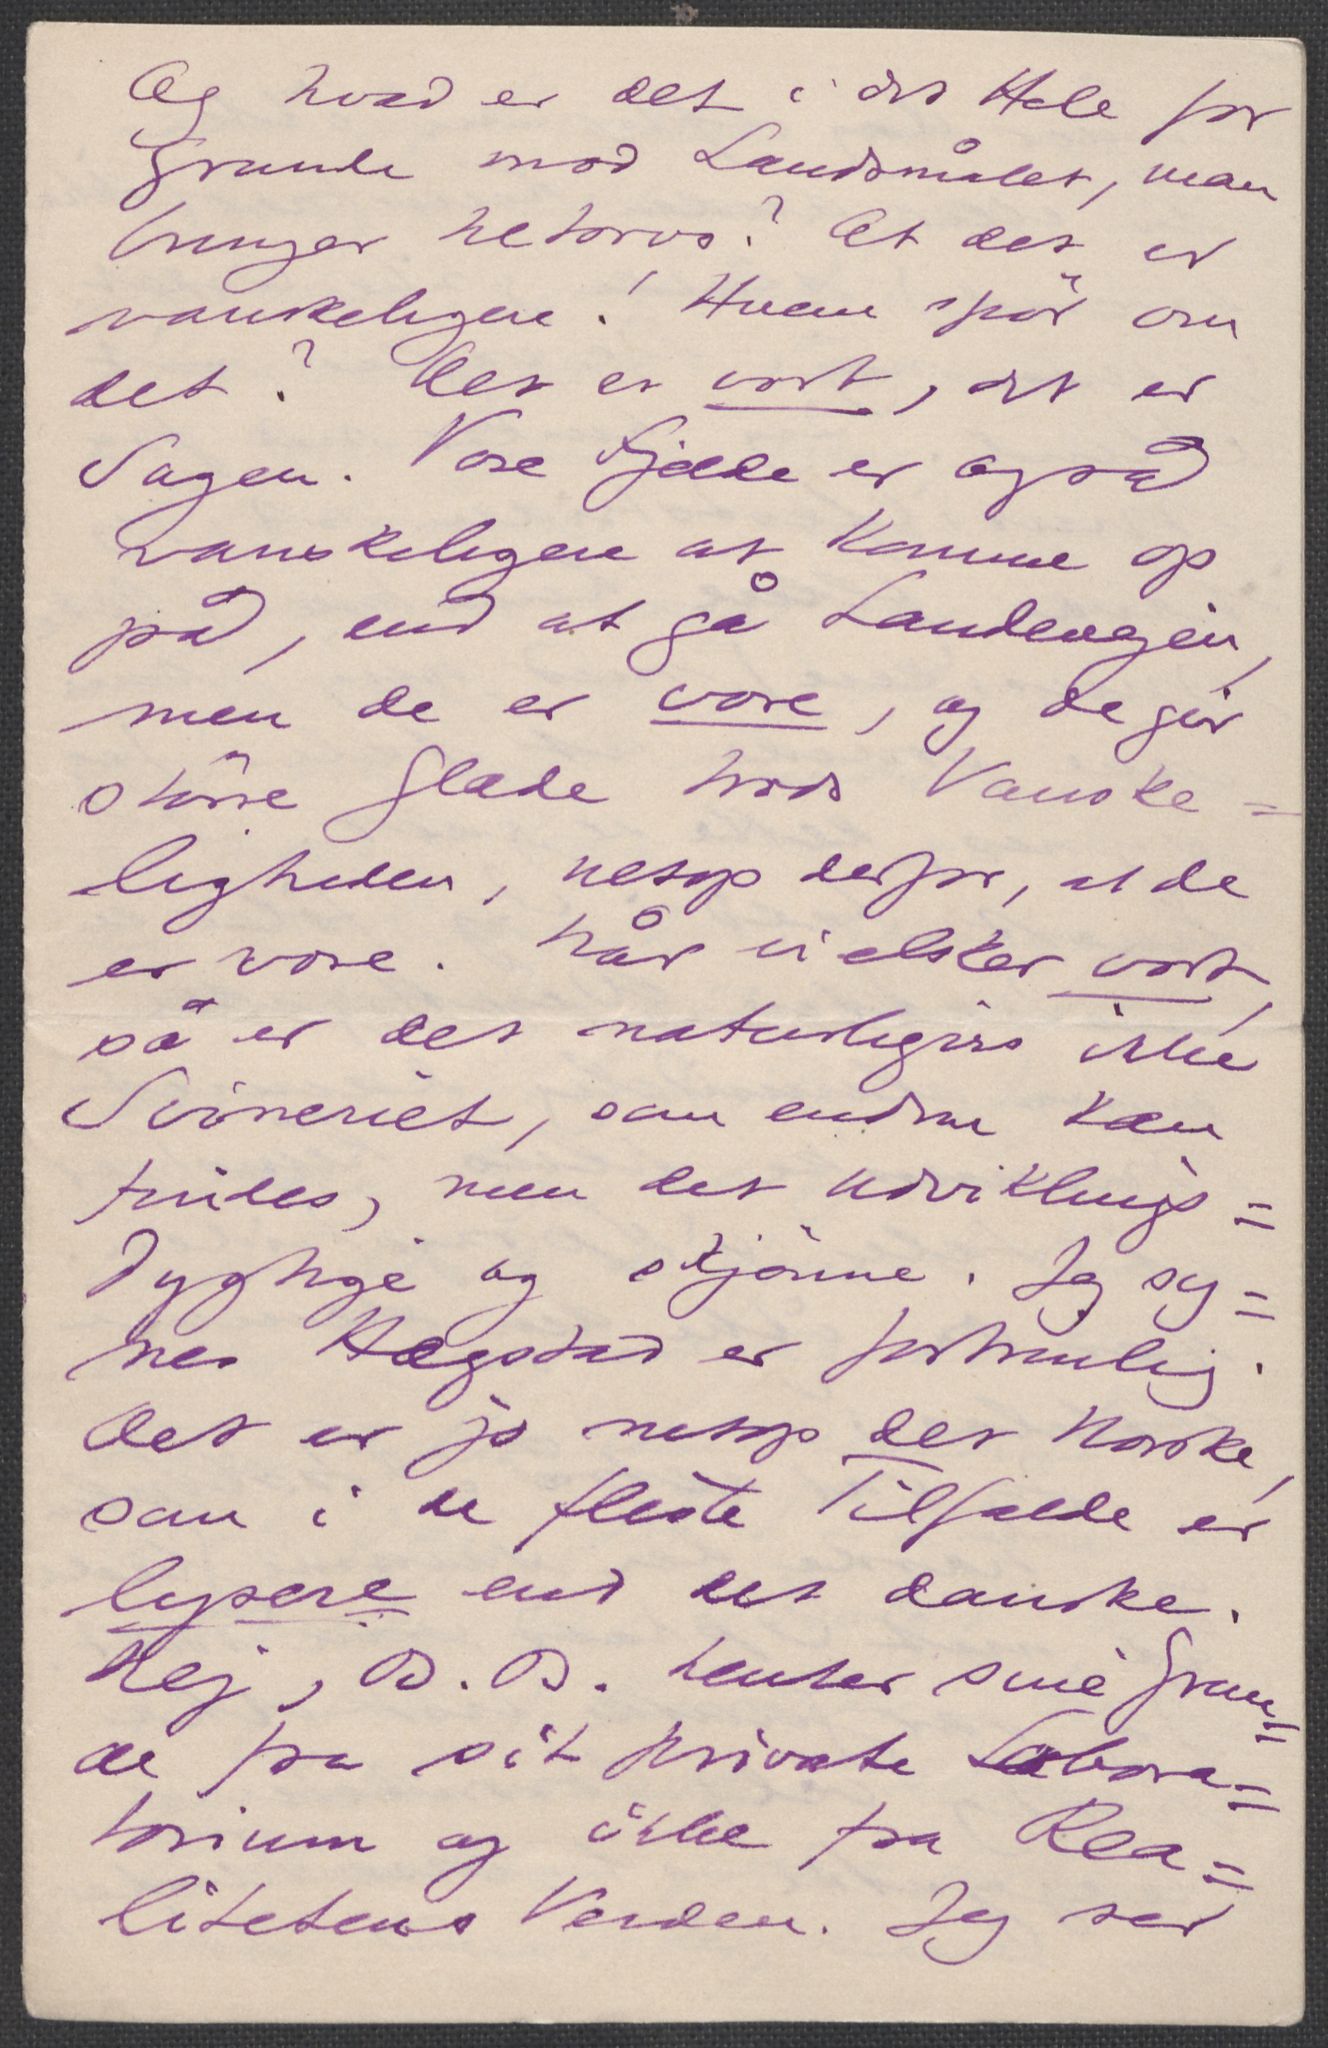 Og hvad er det i det Hele for
Grunde mod Landsmålet, man
bringer tiltorvs? At det er
vanskeligere! Hvem spör om
det? Det er vort, det er
Sagen. Vore Fjelde er også
vanskeligere at komme op
på, end at gå Landevejen,
men de er vore, og de gir
större Glæde trods Vanske=
ligheden, netop derfor, at de
er vore. Når vi elsker vort,
så er det naturligvis ikke
Svineriet, som endnu kan
findes, men det udviklings=
dygtige og skjönne. Jeg sy=
nes Hægstad er fortræffelig.
Det er jo netop det Norske,
som i de fleste Tilfælde er
lysere end det danske.
Nej, B. B. henter sine Grun=
de fra sit private Labora=
torium og ikke fra Rea=
litetens Verden. Jeg ser